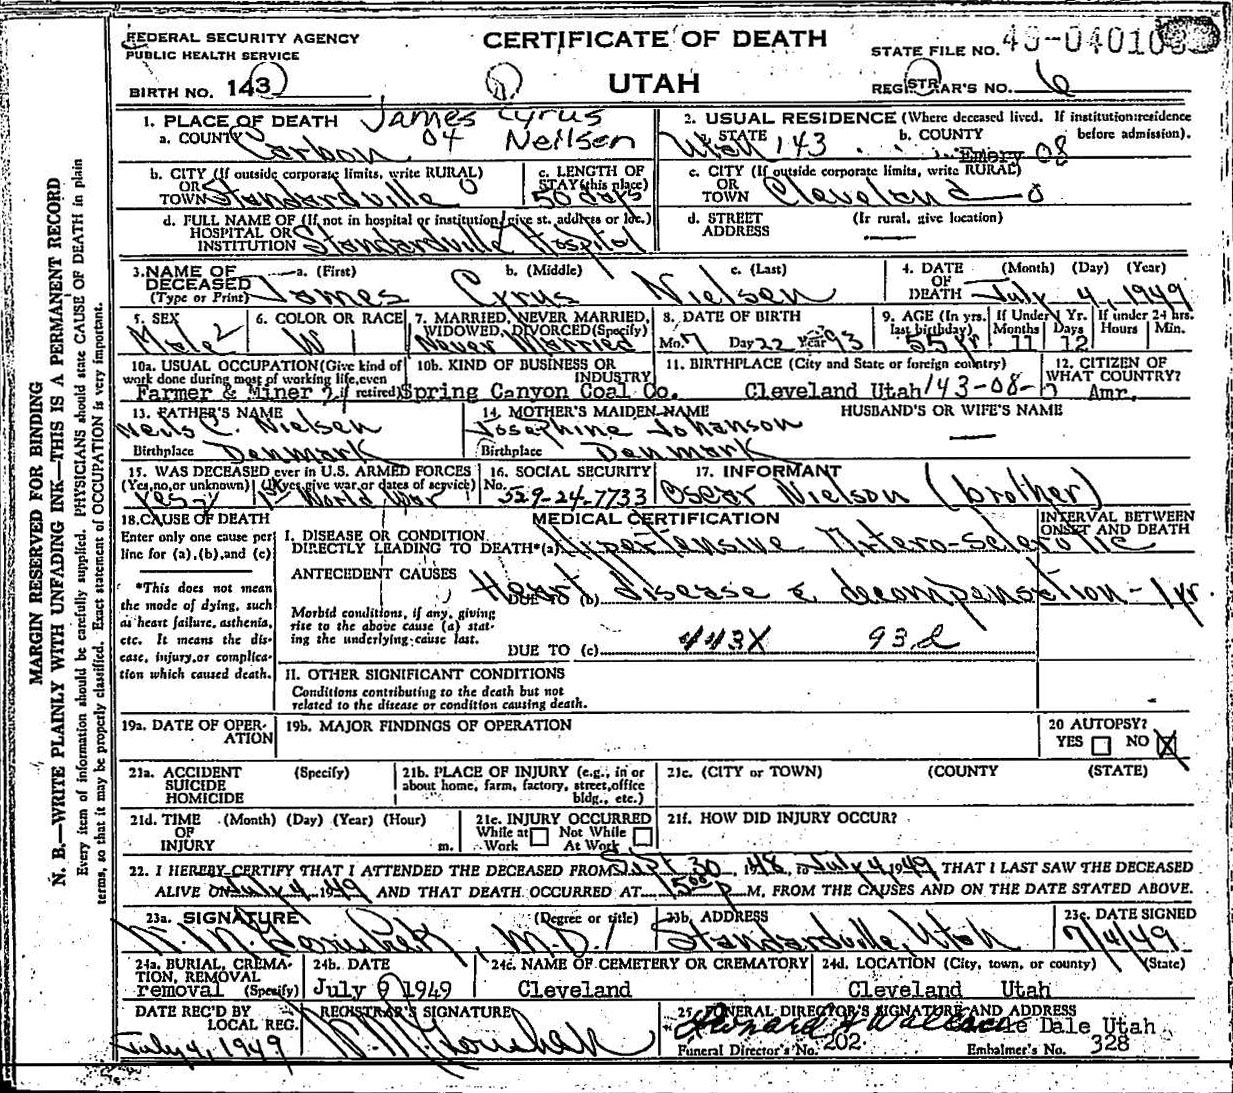 FEDERAL SECURITY AGENCY
PUBLIC HEALTH SERVICE
CERTIFICATE OF DEATH
STATE FILE NO.
BIRTH NO. 143
UTAH
REGISTRAR'S NO. 6
MARGIN RESERVED FOR BINDING
N. B.—WRITE PLAINLY WITH UNFADING INK—THIS IS A PERMANENT RECORD
Every item of information should be carefully supplied. PHYSICIANS should state CAUSE OF DEATH in plain
terms, so that it may be properly classified. Exact statement of OCCUPATION is very important.
1. PLACE OF DEATH James Cyrus
a. COUNTY Carbon 04 Neilsen
2. USUAL RESIDENCE (Where deceased lived. If institution:residence
a. STATE Utah 143 b. COUNTY Emery 08 before admission).
b. CITY (If outside corporate limits, write RURAL)
OR
TOWN Standardville 0
c. LENGTH OF
STAY (this place)
50 days
c. CITY (If outside corporate limits, write RURAL)
OR
TOWN Cleveland 0
d. FULL NAME OF (If not in hospital or institution, give st. address or loc.)
HOSPITAL OR
INSTITUTION Standardville Hospital
d. STREET (If rural, give location)
ADDRESS —
3. NAME OF DECEASED (Type or Print)
a. (First) b. (Middle) c. (Last)
James Cyrus Nielsen
4. DATE OF DEATH (Month) (Day) (Year)
July 4, 1949
5. SEX
Male 2
6. COLOR OR RACE
W 1
7. MARRIED, NEVER MARRIED, WIDOWED, DIVORCED (Specify)
Never Married
8. DATE OF BIRTH
Mo. 7 Day 22 Year 93
9. AGE (In yrs. last birthday)
55 yr
If Under 1 Yr.
Months Days
11 12
If under 24 hrs.
Hours Min.
10a. USUAL OCCUPATION (Give kind of work done during most of working life, even if retired)
Farmer & Miner
10b. KIND OF BUSINESS OR INDUSTRY
Spring Canyon Coal Co.
11. BIRTHPLACE (City and State or foreign country)
Cleveland Utah 143-08-
12. CITIZEN OF WHAT COUNTRY?
Amr.
13. FATHER'S NAME
Neils C. Nielsen
Birthplace Denmark
14. MOTHER'S MAIDEN NAME
Josephine Johanson
Birthplace Denmark
HUSBAND'S OR WIFE'S NAME
—
15. WAS DECEASED ever in U.S. ARMED FORCES
(Yes, no, or unknown) (If yes, give war or dates of service)
Yes 1st World War
16. SOCIAL SECURITY
No. 529-24-7733
17. INFORMANT
Oscar Nielson (brother)
18. CAUSE OF DEATH
Enter only one cause per
line for (a), (b), and (c)
*This does not mean
the mode of dying, such
as heart failure, asthenia,
etc. It means the dis-
ease, injury, or complica-
tion which caused death.
MEDICAL CERTIFICATION
INTERVAL BETWEEN
ONSET AND DEATH
I. DISEASE OR CONDITION
DIRECTLY LEADING TO DEATH*(a) Hypertensive Artero-Sclerotic
ANTECEDENT CAUSES
DUE TO (b) Heart Disease & decompensation - 1 yr.
Morbid conditions, if any, giving
rise to the above cause (a) stat-
ing the underlying cause last.
443X 93d
DUE TO (c)
II. OTHER SIGNIFICANT CONDITIONS
Conditions contributing to the death but not
related to the disease or condition causing death.
19a. DATE OF OPER-
ATION
19b. MAJOR FINDINGS OF OPERATION
20 AUTOPSY?
YES NO X
21a. ACCIDENT (Specify)
SUICIDE
HOMICIDE
21b. PLACE OF INJURY (e.g., in or
about home, farm, factory, street, office
bldg., etc.)
21c. (CITY or TOWN) (COUNTY (STATE)
21d. TIME (Month) (Day) (Year) (Hour)
OF
INJURY m.
21e. INJURY OCCURRED
While at Work Not While At Work
21f. HOW DID INJURY OCCUR?
22. I HEREBY CERTIFY THAT I ATTENDED THE DECEASED FROM Sept 30, 1948, to July 4, 1949 THAT I LAST SAW THE DECEASED
ALIVE ON July 4 1949 AND THAT DEATH OCCURRED AT M, FROM THE CAUSES AND ON THE DATE STATED ABOVE.
23a. SIGNATURE (Degree or title)
M.D.
23b. ADDRESS
Standardville, Utah
23c. DATE SIGNED
7/4/49
24a. BURIAL, CREMA-
TION, REMOVAL
removal (Specify)
24b. DATE
July 6 1949
24c. NAME OF CEMETERY OR CREMATORY
Cleveland
24d. LOCATION (City, town, or county) (State)
Cleveland Utah
DATE REC'D BY
LOCAL REG.
July 4, 1949
REGISTRAR'S SIGNATURE
25. FUNERAL DIRECTOR'S SIGNATURE AND ADDRESS
Wallace Dale Utah
Funeral Director's No. 202 Embalmer's No. 328